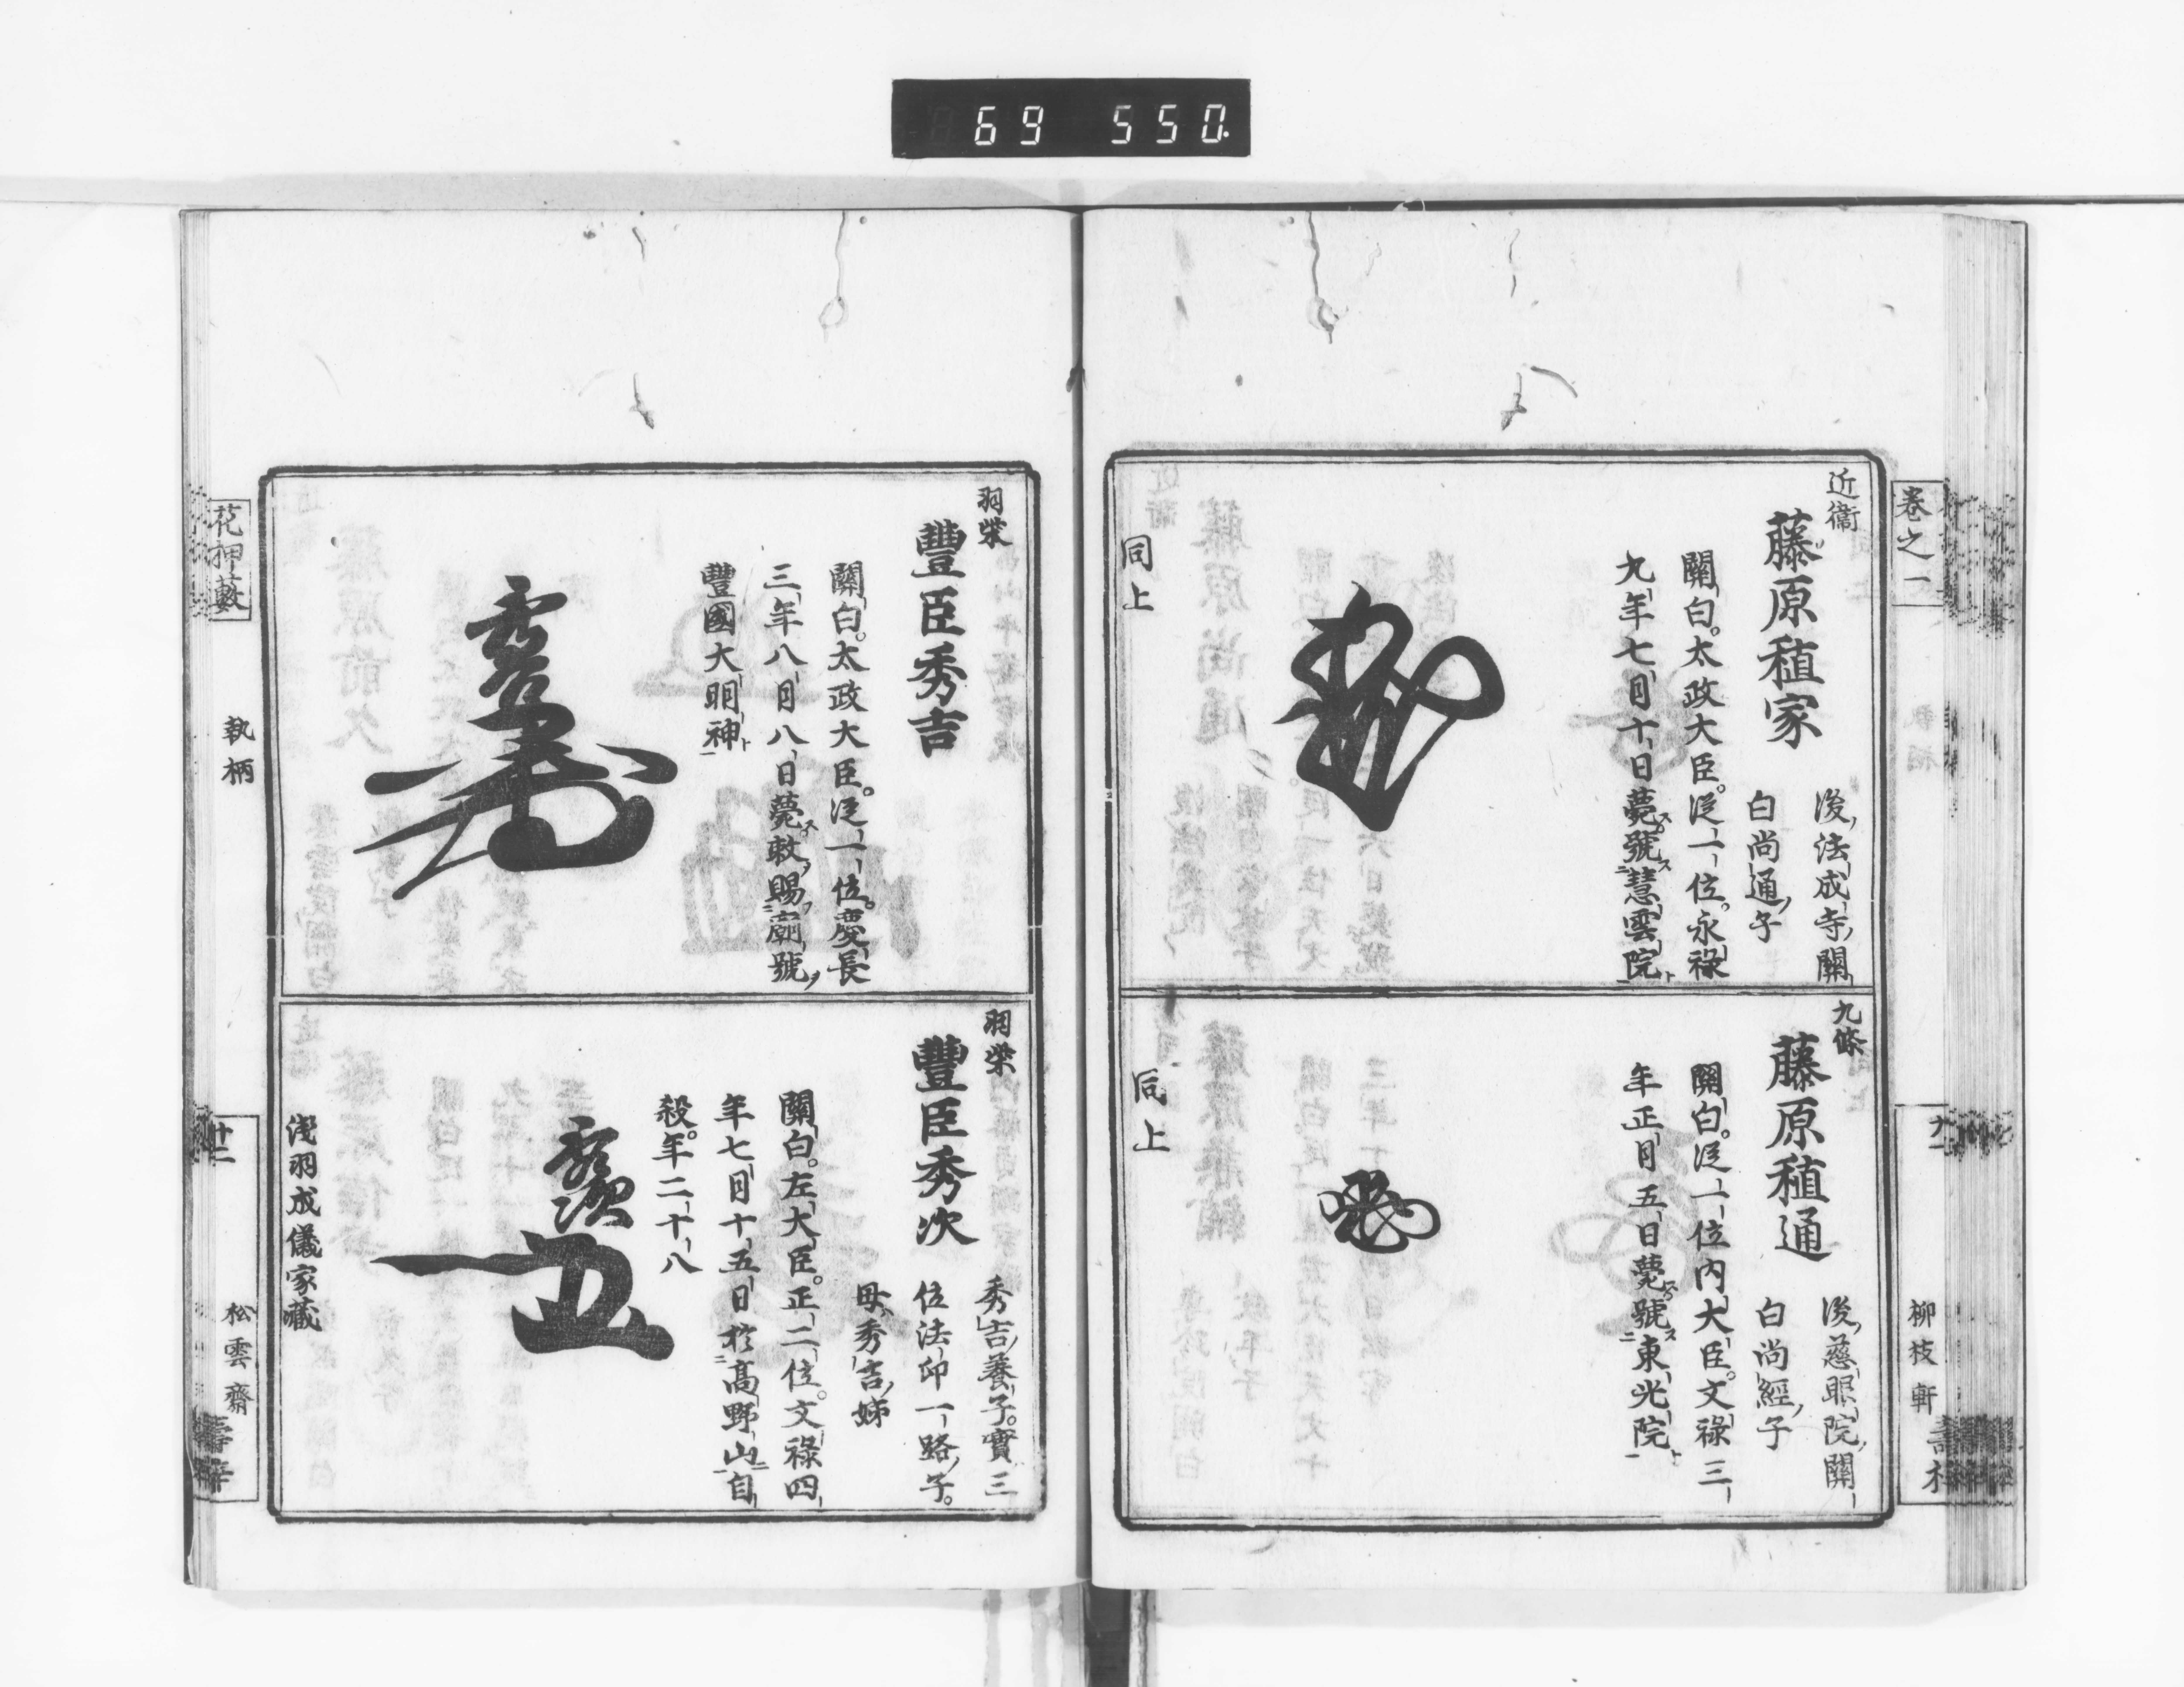 69 550.
卷之一
柳枝軒
近衞
藤原稙家
後法成寺關
白尚通子
關白。太政大臣。從一位。永祿
九年七月十日薨號慧雲院
同上
九條
藤原稙通
後慈眼院關
白尚經子
關白。從一位內大臣。文祿三
年正月五日薨號東光院
同上
羽柴
豐臣秀吉
關白。太政大臣。從一位。慶長
三年八月八日薨敕賜廟號
豐國大明神
羽柴
豐臣秀次
秀吉養子。實三
位法印一路子。
母秀吉姊
關白。左大臣。正二位。文祿四
年七月十五日於高野山自
殺。年二十八
淺羽成儀家藏
花押藪
執柄
十二
松雲齋